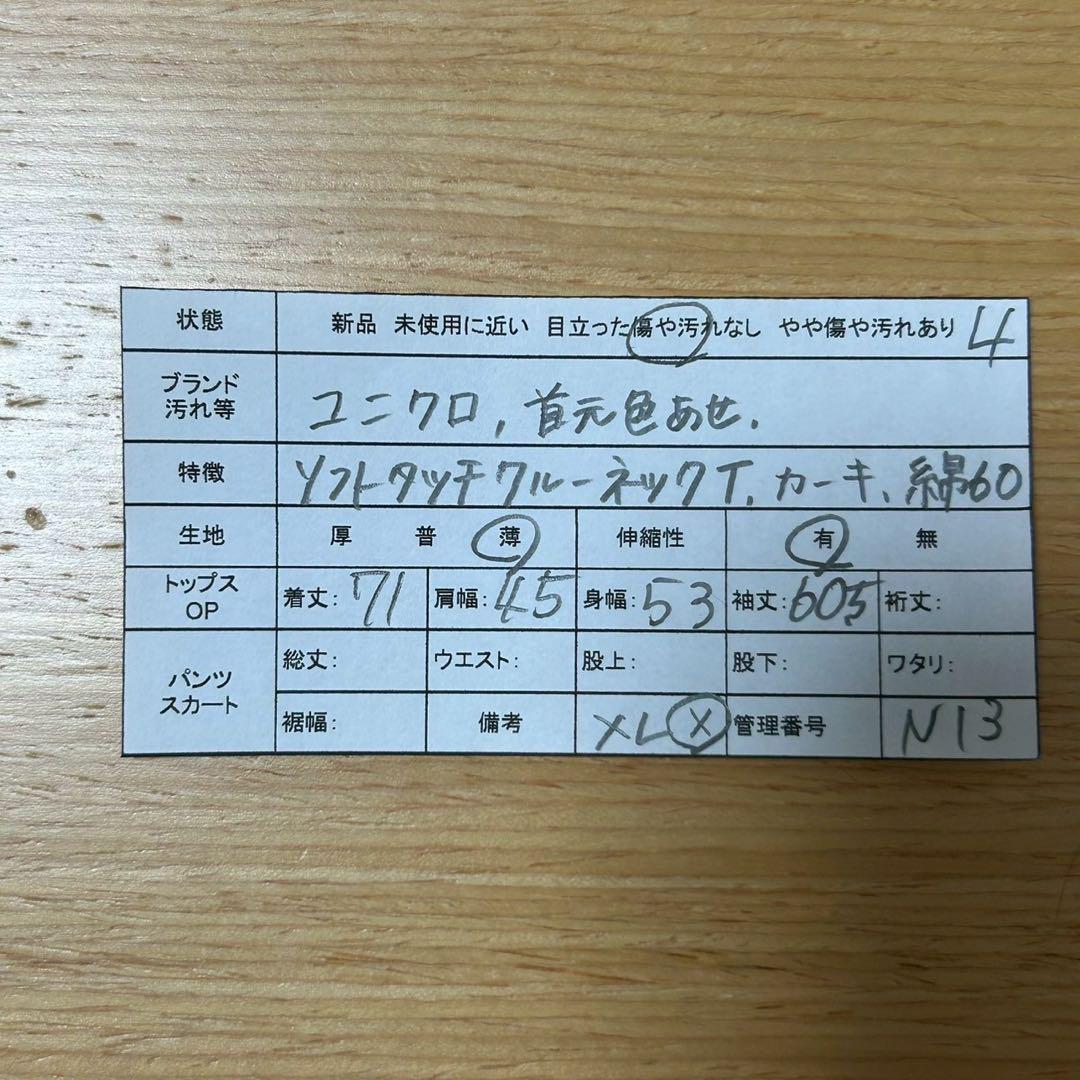 状態 新品 未使用に近い 目立った傷や汚れなし やや傷や汚れあり 4
ブランド 汚れ等 ユニクロ, 首元色あせ.
特徴 ソフトタッチクルーネックT. カーキ. 綿60
生地 厚 普 薄 伸縮性 有 無
トップス OP 着丈: 71 肩幅: 45 身幅: 53 袖丈: 605 裄丈:
パンツ スカート 総丈: ウエスト: 股上: 股下: ワタリ:
裾幅: 備考 XL X 管理番号 N13